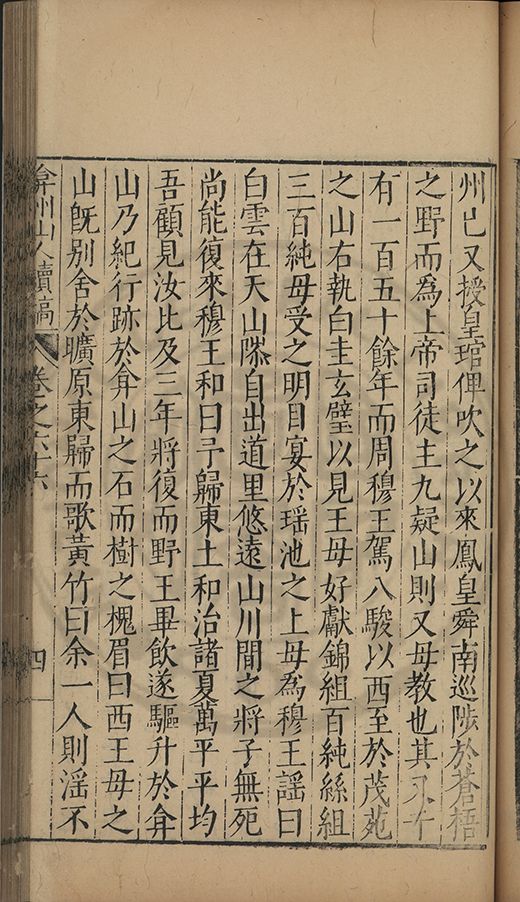 州已又授皇琯俾吹之以來鳳皇舜南巡陟於蒼梧
之野而為上帝司徒主九疑山則又母教也其又千
有一百五十餘年而周穆王駕八駿以西至於茂苑
之山右執白圭玄璧以見王母好獻錦組百純絲組
三百純母受之明日宴於瑶池之上母為穆王謡曰
白雲在天山𨻶自出道里悠遠山川間之將子無死
尚能復來穆王和曰予歸東土和治諸夏萬平平均
吾顧見汝比及三年將復而野王畢飲遂驅升於弇
山乃紀行跡於弇山之石而樹之槐眉曰西王母之
山既别舍於曠原東歸而歌黃竹曰余一人則滛不
弇州山人續稿 卷之六十六 四